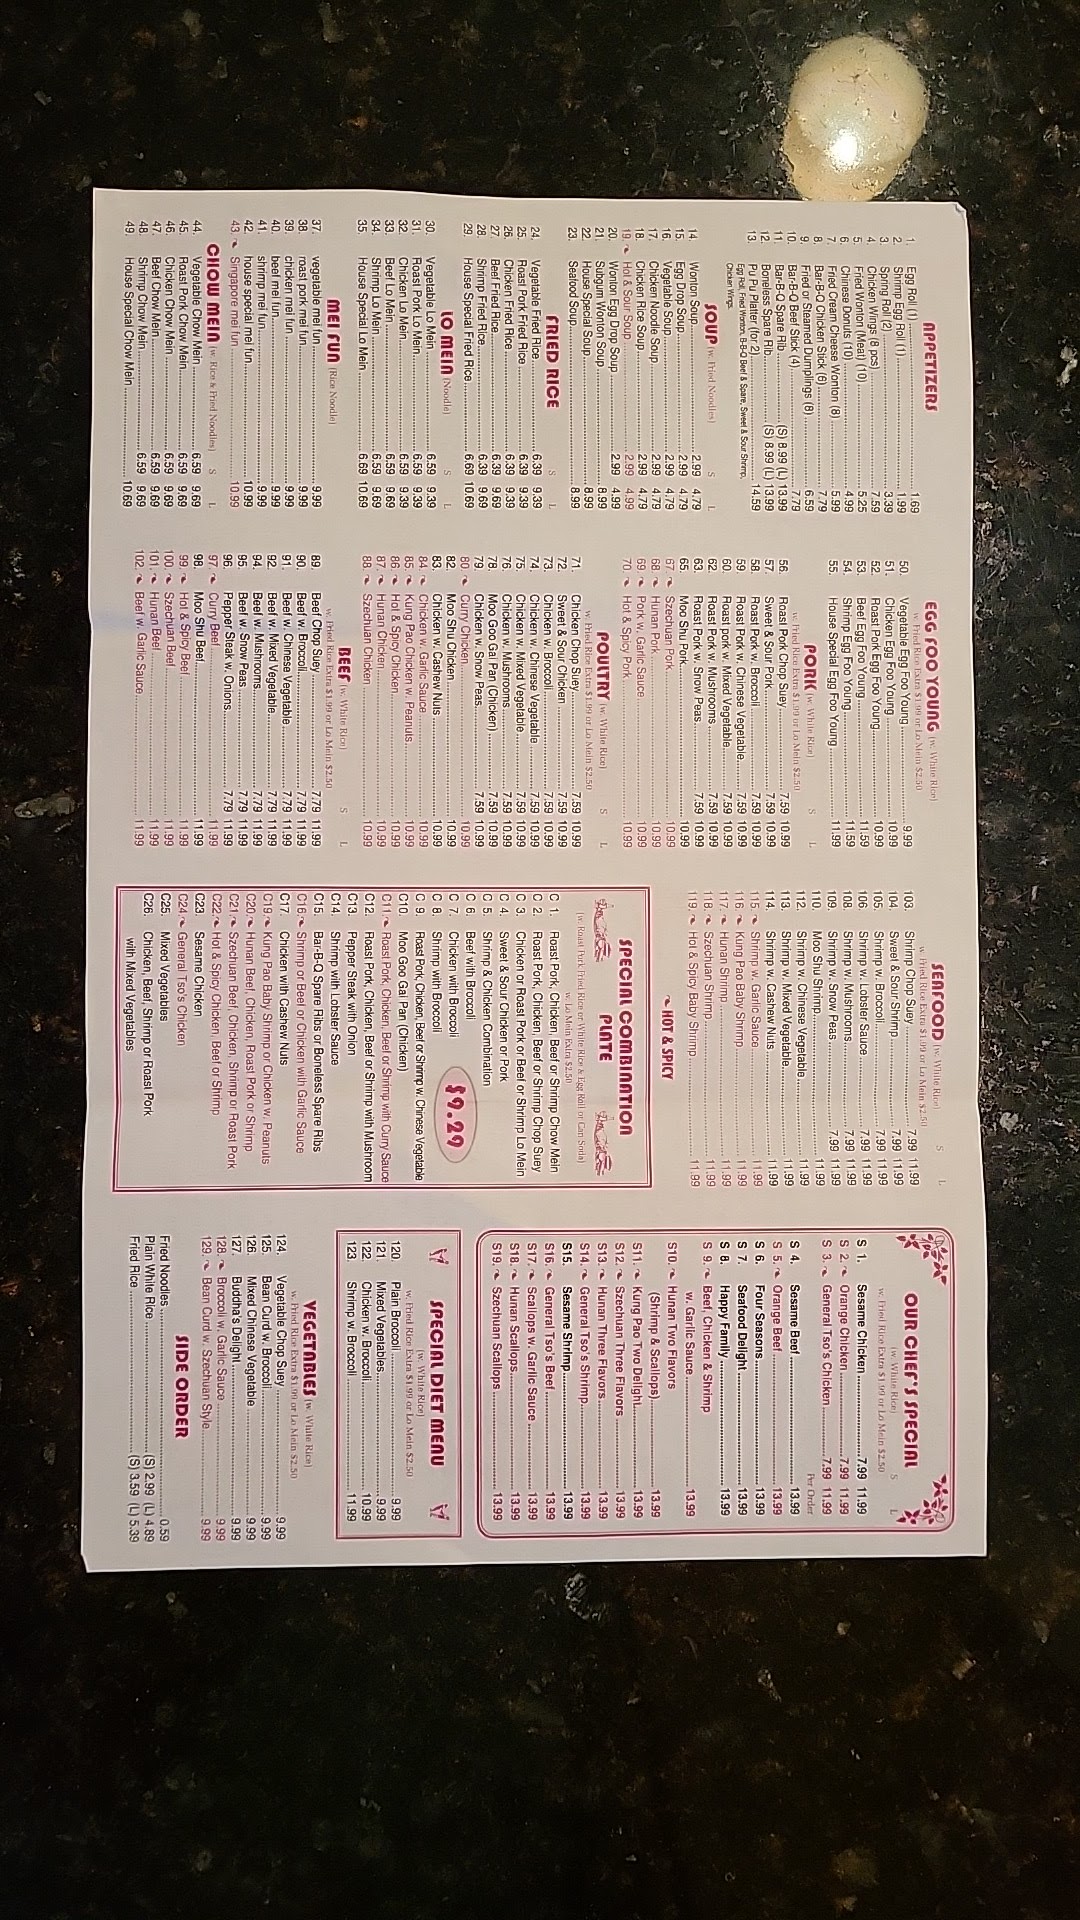 APPETIZERS
1. Egg Roll (1) 1.69
2. Shrimp Egg Roll (1) 1.99
3. Spring Roll (2) 3.39
4. Chicken Wings (8 pcs) 7.59
5. Fried Wonton (Meat) (10) 5.25
6. Chinese Donuts (10) 4.99
7. Fried Cream Cheese Wonton (8) 5.99
8. Bar-B-Q Chicken Stick (6) 7.79
9. Fried or Steamed Dumplings (8) 6.59
10. Bar-B-Q Beef Stick (4) 7.79
11. Bar-B-Q Spare Rib (S) 8.99 (L) 13.99
12. Boneless Spare Rib (S) 8.99 (L) 13.99
13. Pu Pu Platter (for 2) 14.59
Egg Roll, Fried Wonton, B-B-Q Beef & Spare, Sweet & Sour Shrimp,
Chicken Wings.
SOUP (w. Fried Noodles) S L
14. Wonton Soup 2.99 4.79
15. Egg Drop Soup 2.99 4.79
16. Vegetable Soup 2.99 4.79
17. Chicken Noodle Soup 2.99 4.79
18. Chicken Rice Soup 2.99 4.79
19. Hot & Sour Soup 2.99 4.99
20. Wonton Egg Drop Soup 2.99 4.99
21. Subgum Wonton Soup 8.99
22. House Special Soup 8.99
23. Seafood Soup 8.99
FRIED RICE S L
24. Vegetable Fried Rice 6.39 9.39
25. Roast Pork Fried Rice 6.39 9.39
26. Chicken Fried Rice 6.39 9.39
27. Beef Fried Rice 6.39 9.69
28. Shrimp Fried Rice 6.39 9.69
29. House Special Fried Rice 6.69 10.69
LO MEIN (Noodle) S L
30. Vegetable Lo Mein 6.59 9.39
31. Roast Pork Lo Mein 6.59 9.39
32. Chicken Lo Mein 6.59 9.39
33. Beef Lo Mein 6.59 9.69
34. Shrimp Lo Mein 6.59 9.69
35. House Special Lo Mein 6.69 10.69
MEI FUN (Rice Noodle)
37. vegetable mei fun 9.99
38. roast pork mei fun 9.99
39. chicken mei fun 9.99
40. beef mei fun 9.99
41. shrimp mei fun 9.99
42. house special mei fun 10.99
43. Singapore mei fun 10.99
CHOW MEIN (w. Rice & Fried Noodles) S L
44. Vegetable Chow Mein 6.59 9.69
45. Roast Pork Chow Mein 6.59 9.69
46. Chicken Chow Mein 6.59 9.69
47. Beef Chow Mein 6.59 9.69
48. Shrimp Chow Mein 6.59 9.69
49. House Special Chow Mein 10.69
EGG FOO YOUNG (w. White Rice)
w. Fried Rice Extra $1.99 or Lo Mein $2.50
50. Vegetable Egg Foo Young 9.99
51. Chicken Egg Foo Young 10.99
52. Roast Pork Egg Foo Young 10.99
53. Beef Egg Foo Young 11.59
54. Shrimp Egg Foo Young 11.59
55. House Special Egg Foo Young 11.59
PORK (w. White Rice) S L
w. Fried Rice Extra $1.99 or Lo Mein $2.50
56. Roast Pork Chop Suey 7.59 10.99
57. Sweet & Sour Pork 7.59 10.99
58. Roast Pork w. Broccoli 7.59 10.99
59. Roast Pork w. Chinese Vegetable 7.59 10.99
60. Roast Pork w. Mixed Vegetable 7.59 10.99
62. Roast pork w. Mushrooms 7.59 10.99
63. Roast Pork w. Snow Peas 7.59 10.99
65. Moo Shu Pork 10.99
67. Szechuan Pork 10.99
68. Hunan Pork 10.99
69. Pork w. Garlic Sauce 10.99
70. Hot & Spicy Pork 10.99
POULTRY (w. White Rice) S L
w. Fried Rice Extra $1.99 or Lo Mein $2.50
71. Chicken Chop Suey 7.59 10.99
72. Sweet & Sour Chicken 7.59 10.99
73. Chicken w. Broccoli 7.59 10.99
74. Chicken w. Chinese Vegetable 7.59 10.99
75. Chicken w. Mixed Vegetable 7.59 10.99
76. Chicken w. Mushrooms 7.59 10.99
78. Moo Goo Gai Pan (Chicken) 7.59 10.99
79. Chicken w. Snow Peas 7.59 10.99
80. Curry Chicken 10.99
82. Moo Shu Chicken 10.99
83. Chicken w. Cashew Nuts 10.99
84. Chicken w. Garlic Sauce 10.99
85. Kung Pao Chicken w. Peanuts 10.99
86. Hot & Spicy Chicken 10.99
87. Hunan Chicken 10.99
88. Szechuan Chicken 10.99
BEEF (w. White Rice) S L
w. Fried Rice Extra $1.99 or Lo Mein $2.50
89. Beef Chop Suey 7.79 11.99
90. Beef w. Broccoli 7.79 11.99
91. Beef w. Chinese Vegetable 7.79 11.99
92. Beef w. Mixed Vegetable 7.79 11.99
94. Beef w. Mushrooms 7.79 11.99
95. Beef w. Snow Peas 7.79 11.99
96. Pepper Steak w. Onions 7.79 11.99
97. Curry Beef 11.99
98. Moo Shu Beef 11.99
99. Hot & Spicy Beef 11.99
100. Szechuan Beef 11.99
101. Hunan Beef 11.99
102. Beef w. Garlic Sauce 11.99
SEAFOOD (w. White Rice) S L
w. Fried Rice Extra $1.99 or Lo Mein $2.50
103. Shrimp Chop Suey 7.99 11.99
104. Sweet & Sour Shrimp 7.99 11.99
105. Shrimp w. Broccoli 7.99 11.99
106. Shrimp w. Lobster Sauce 7.99 11.99
108. Shrimp w. Mushrooms 7.99 11.99
109. Shrimp w. Snow Peas 7.99 11.99
110. Moo Shu Shrimp 11.99
112. Shrimp w. Chinese Vegetable 11.99
113. Shrimp w. Mixed Vegetable 11.99
114. Shrimp w. Cashew Nuts 11.99
115. Shrimp w. Garlic Sauce 11.99
116. Kung Pao Baby Shrimp 11.99
117. Hunan Shrimp 11.99
118. Szechuan Shrimp 11.99
119. Hot & Spicy Baby Shrimp 11.99
HOT & SPICY
SPECIAL COMBINATION
PLATE
(w. Roast Pork Fried Rice or White Rice & Egg Roll or Can Soda)
w. Lo Mein Extra $2.50
$9.29
C 1. Roast Pork, Chicken, Beef or Shrimp Chow Mein
C 2. Roast Pork, Chicken, Beef or Shrimp Chop Suey
C 3. Chicken or Roast Pork or Beef or Shrimp Lo Mein
C 4. Sweet & Sour Chicken or Pork
C 5. Shrimp & Chicken Combination
C 6. Beef with Broccoli
C 7. Chicken with Broccoli
C 8. Shrimp with Broccoli
C 9. Roast Pork, Chicken, Beef or Shrimp w. Chinese Vegetable
C10. Moo Goo Gai Pan (Chicken)
C11. Roast Pork, Chicken, Beef or Shrimp with Curry Sauce
C12. Roast Pork, Chicken, Beef or Shrimp with Mushroom
C13. Pepper Steak with Onion
C14. Shrimp with Lobster Sauce
C15. Bar-B-Q Spare Ribs or Boneless Spare Ribs
C16. Shrimp or Beef or Chicken with Garlic Sauce
C17. Chicken with Cashew Nuts
C19. Kung Pao Baby Shrimp or Chicken w. Peanuts
C20. Hunan Beef, Chicken, Roast Pork or Shrimp
C21. Szechuan Beef, Chicken, Shrimp or Roast Pork
C22. Hot & Spicy Chicken, Beef or Shrimp
C23. Sesame Chicken
C24. General Tso's Chicken
C25. Mixed Vegetables
C26. Chicken, Beef, Shrimp or Roast Pork
with Mixed Vegetables
OUR CHEF'S SPECIAL
(w. White Rice) S L
w. Fried Rice Extra $1.99 or Lo Mein $2.50
S 1. Sesame Chicken 7.99 11.99
S 2. Orange Chicken 7.99 11.99
S 3. General Tso's Chicken 7.99 11.99
Per Order
S 4. Sesame Beef 13.99
S 5. Orange Beef 13.99
S 6. Four Seasons 13.99
S 7. Seafood Delight 13.99
S 8. Happy Family 13.99
S 9. Beef, Chicken & Shrimp
w. Garlic Sauce 13.99
S10. Hunan Two Flavors
(Shrimp & Scallops) 13.99
S11. Kung Pao Two Delight 13.99
S12. Szechuan Three Flavors 13.99
S13. Hunan Three Flavors 13.99
S14. General Tso's Shrimp 13.99
S15. Sesame Shrimp 13.99
S16. General Tso's Beef 13.99
S17. Scallops w. Garlic Sauce 13.99
S18. Hunan Scallops 13.99
S19. Szechuan Scallops 13.99
SPECIAL DIET MENU
(w. White Rice)
w. Fried Rice Extra $1.99 or Lo Mein $2.50
120. Plain Broccoli 9.99
121. Mixed Vegetables 9.99
122. Chicken w. Broccoli 10.99
123. Shrimp w. Broccoli 11.99
VEGETABLES (w. White Rice)
w. Fried Rice Extra $1.99 or Lo Mein $2.50
124. Vegetable Chop Suey 9.99
125. Bean Curd w. Broccoli 9.99
126. Mixed Chinese Vegetable 9.99
127. Buddha's Delight 9.99
128. Broccoli w. Garlic Sauce 9.99
129. Bean Curd w. Szechuan Style 9.99
SIDE ORDER
Fried Noodles 0.59
Plain White Rice (S) 2.99 (L) 4.89
Fried Rice (S) 3.59 (L) 5.39